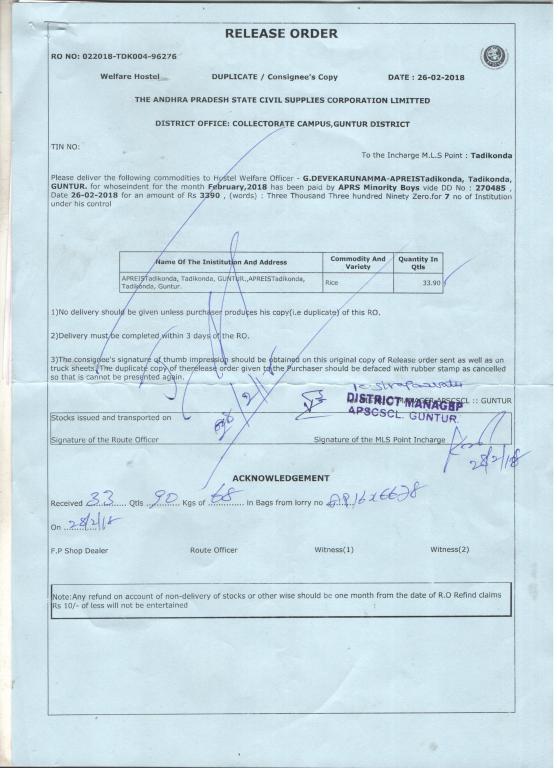 RELEASE ORDER
RO NO: 022018-TDK004-96276
Welfare Hostel DUPLICATE / Consignee's Copy DATE : 26-02-2018
THE ANDHRA PRADESH STATE CIVIL SUPPLIES CORPORATION LIMITTED
DISTRICT OFFICE: COLLECTORATE CAMPUS,GUNTUR DISTRICT
TIN NO:
To the Incharge M.L.S Point : Tadikonda
Please deliver the following commodities to Hostel Welfare Officer - G.DEVEKARUNAMMA-APREISTadikonda, Tadikonda,
GUNTUR. for whoseindent for the month February,2018 has been paid by APRS Minority Boys vide DD No : 270485 ,
Date 26-02-2018 for an amount of Rs 3390 , (words) : Three Thousand Three hundred Ninety Zero.for 7 no of Institution
under his control
Name Of The Inistitution And Address Commodity And Variety Quantity In Qtls
APREISTadikonda, Tadikonda, GUNTUR.,APREISTadikonda,
Tadikonda, Guntur. Rice 33.90
1)No delivery should be given unless purchaser produces his copy(i.e duplicate) of this RO.
2)Delivery must be completed within 3 days of the RO.
3)The consignee's signature of thumb impression should be obtained on this original copy of Release order sent as well as on
truck sheets.The duplicate copy of therelease order given to the Purchaser should be defaced with rubber stamp as cancelled
so that is cannot be presented again.
MANAGER APSCSCL :: GUNTUR
DISTRICT MANAGER
APSCSCL. GUNTUR.
Stocks issued and transported on
Signature of the Route Officer Signature of the MLS Point Incharge
28/2/18
ACKNOWLEDGEMENT
Received 33 Qtls 90 Kgs of 68 in Bags from lorry no AP16X6678
On 28/2/18
F.P Shop Dealer Route Officer Witness(1) Witness(2)
Note:Any refund on account of non-delivery of stocks or other wise should be one month from the date of R.O Refind claims
Rs 10/- of less will not be entertained